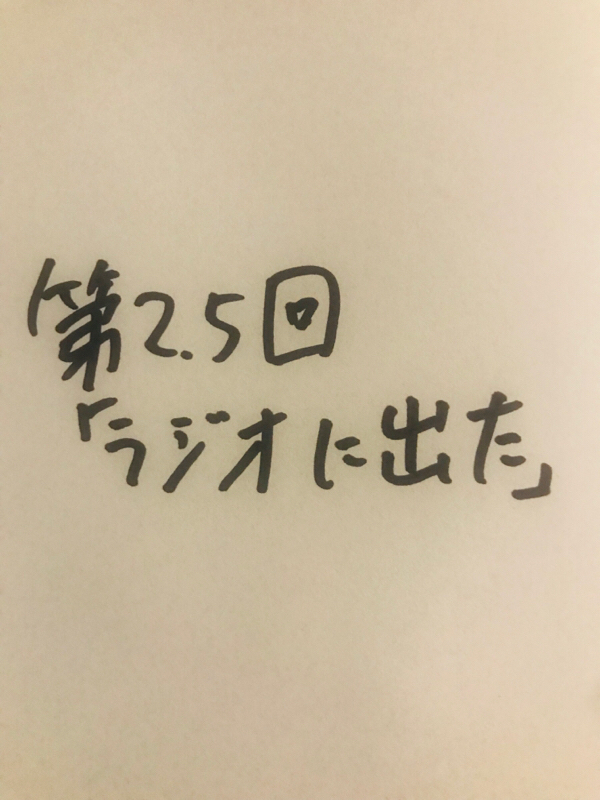 第2.5回
「ラジオに出た」